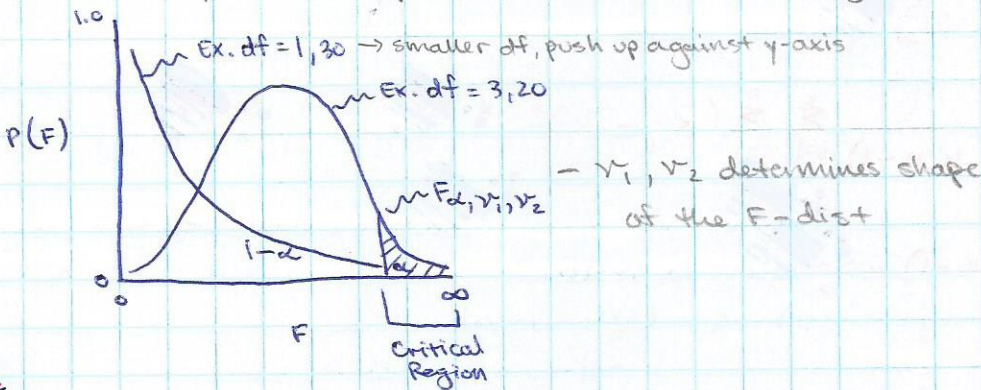 1.0
Ex. df = 1,30 → smaller df, push up against y-axis
Ex. df = 3,20
P(F)
- ν₁, ν₂ determines shape
of the F-dist
Fα,ν₁,ν₂
1-α
α
0
0
∞
F
Critical
Region